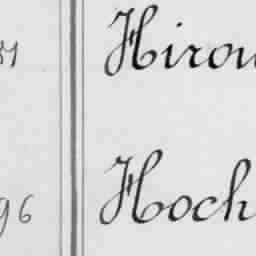 51 Hirou
96 Hoch